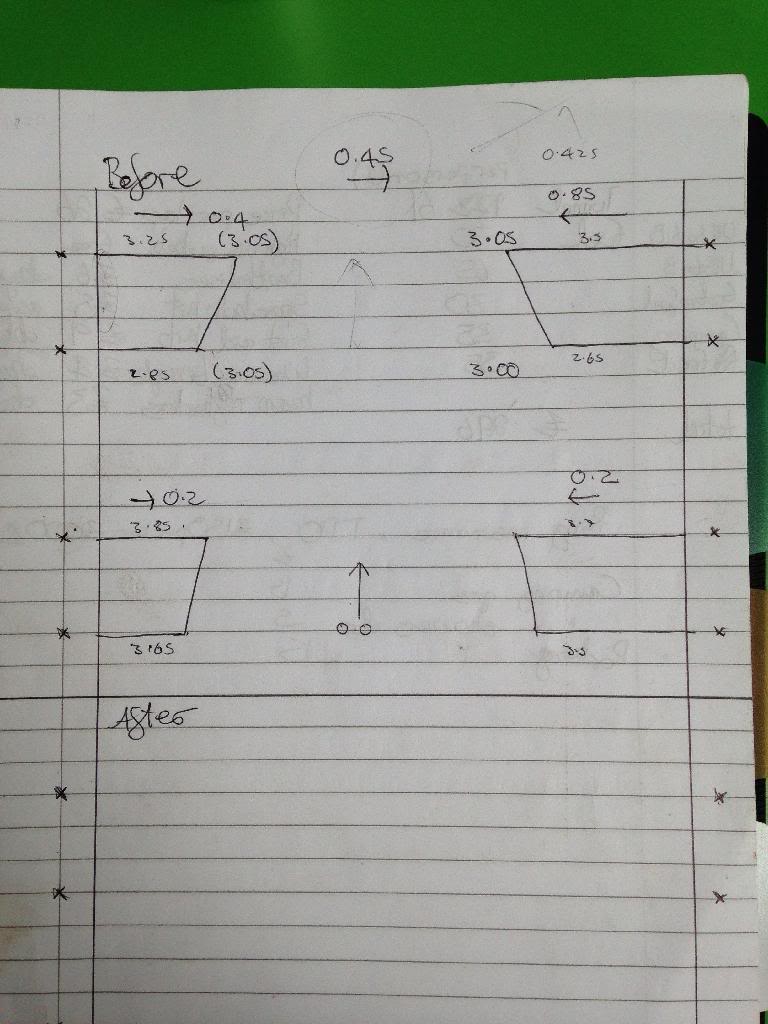 Before
0.45
0.425
0.4
0.85
3.25 (3.05)
3.05 3.5
2.85 (3.05)
3.00 2.65
0.2
0.2
3.85
3.7
0.0
3.65
3.5
After